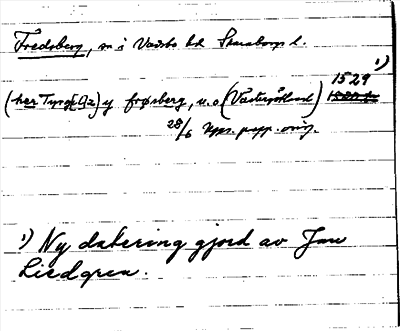 Fredsberg, sn i Vadsbo hd Skaraborgs l.
1)
(her Tyrgelsz) y frøsberg, u.o (Västergötland) 1529
28/6 Upps. papp. orig.
1) Ny datering gjord av Jan
Liedgren.